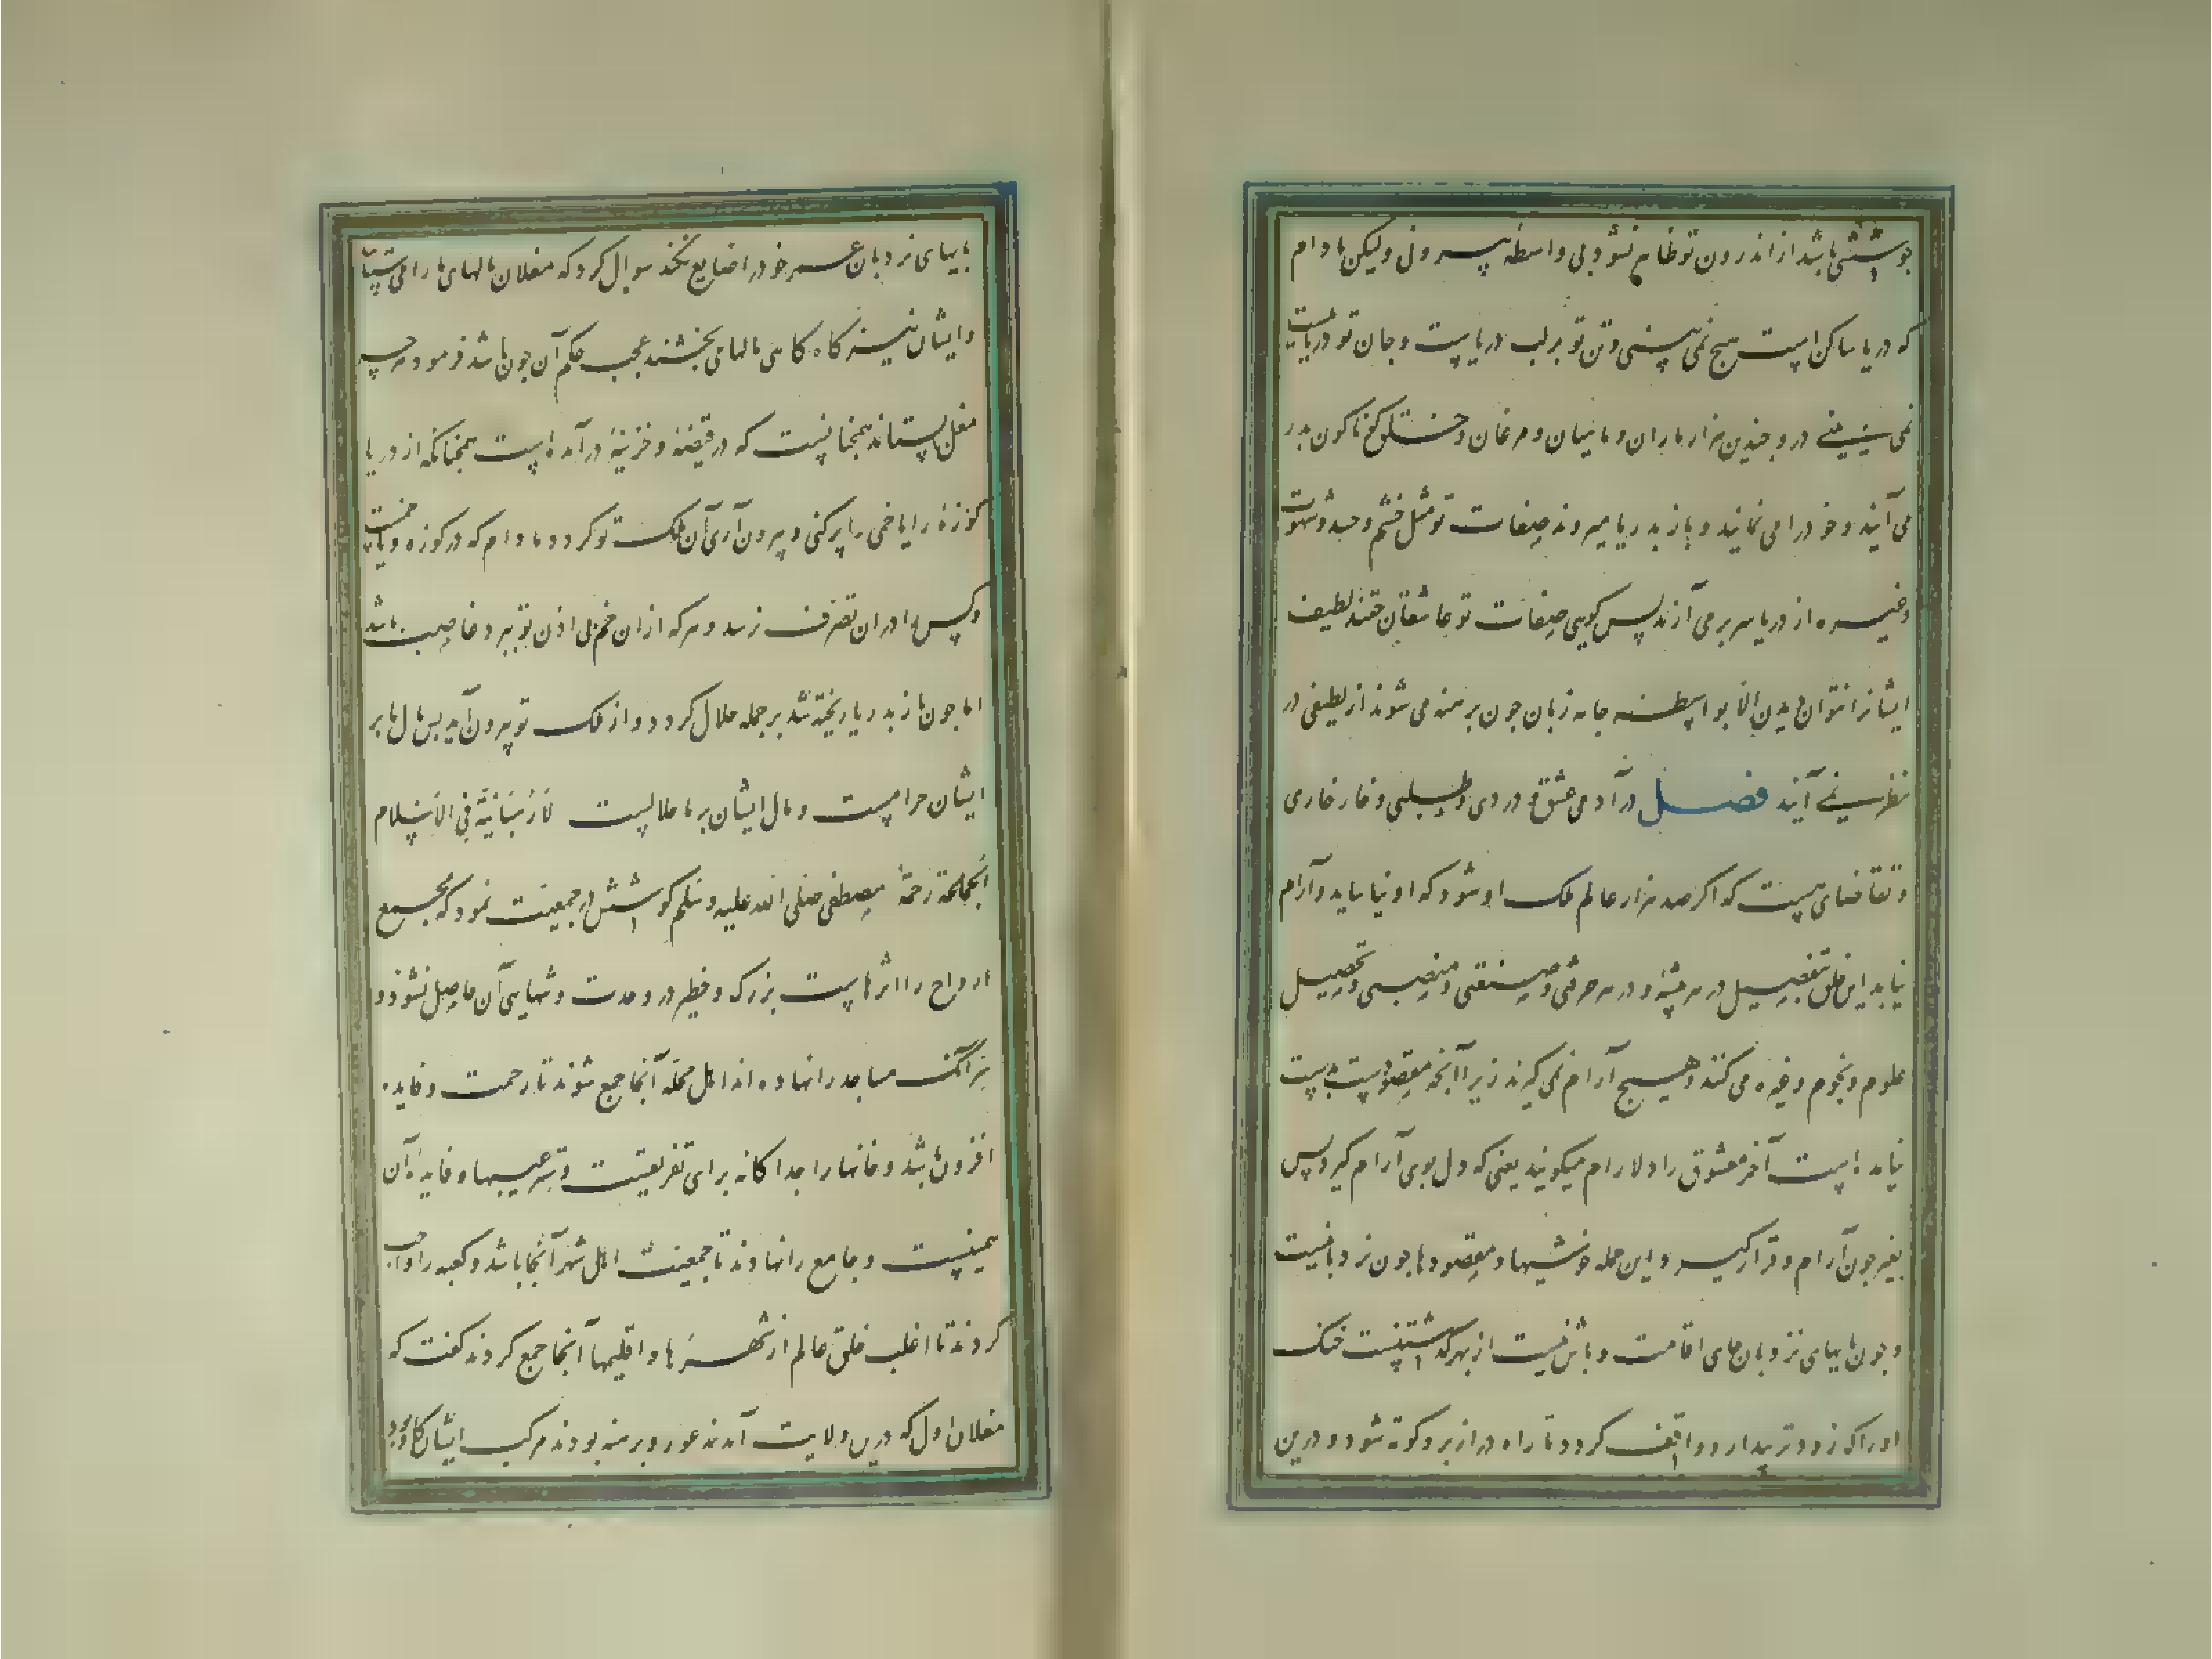 جوششی باشد از اندرون تو ظاهر نشود بی واسطه بیرونی ولیکن مادام
که دریا ساکن است هیچ نمی بینی و تن تو بر لب دریاست و جان تو دریاییست
نمی بینی درو چندین هزار ماران و ماهیان و مرغان و خلق کوناکون بدر
می آیند و خود را می نمایند و باز بدریا میروند صفات تو مثل خشم و حسد و شهوت
وغیره از دریا سر برمی آرند پس کویی صفات تو عاشقان حقند لطیف
ایشانرا نتوان دیدن الا بواسطه جامه زبان چون برهنه می شوند از لطیفی در
نظر نمی آیند فصل در آدمی عشقی و دردی و طلبی و خارخاری
و تقاضای هست که اکر صد هزار عالم ملک او شود که او نیاساید و آرام
نیابد این خلق بتفصیل در هر پیشهٔ و در هر حرفتی و صنعتی و منصبی و تحصیل
علوم و نجوم و غیره می کنند و هیچ آرام نمی کیرند زیرا آنچه مقصودست بدست
نیامده است آخر معشوق را دلارام میکویند یعنی که دل بوی آرام کیرد پس
بغیر چون آرام و قرار کیرد و این جمله خوشیها و مقصودها چون نردبانیست
و چون پایهای نردبان جای اقامت و باش نیست از بهر کذشتنست خنک
او را که زودتر بیدار و واقف کردد تا راه دراز برو کوته شود و درین
پایهای نردبان عمر خود را ضایع نکند سوال کرد که مغلان مالهای ما را می ستانند
وایشان نیز کاه کاهی مالها می بخشند عجب حکم آن چون باشد فرمود هرچه
مغل بستاند همچنانست که در قبضه و خزینهٔ درآمده است همچنانکه از دریا
کوزهٔ را یا خمی را پر کنی و بیرون آری آن ملک تو کردد مادام که در کوزه و یا خمست
و کس را در آن تصرف نرسد و هرکه از آن خم بی اذن تو ببرد غاصب باشد
اما چون باز بدریا ریخته شد بر جمله حلال کردد و از ملک تو بیرون آید پس مال ما بر
ایشان حرامست و مال ایشان بر ما حلالست لا رهبانیة فی الاسلام
الجماعة رحمة مصطفی صلی الله علیه وسلم کوشش در جمعیت نمود که مجمع
ارواح را اثرهاست بزرک و خطیر در وحدت و تنهایی آن حاصل نشود و
سر آنک مساجد را نهاده اند اهل محله آنجا جمع شوند تا رحمت و فایده
افزون باشد و خانها را جداکانه برای تفریقیست و ستر عیبها و فایدهٔ آن
همینست و جامع را نهادند تا جمعیت اهل شهر آنجا باشد و کعبه را واجب
کردند تا اغلب خلق عالم از شهرها و اقلیمها آنجا جمع کردند کفت که
مغلان اول که درین ولایت آمدند عور و برهنه بودند مرکب ایشان کاو بود